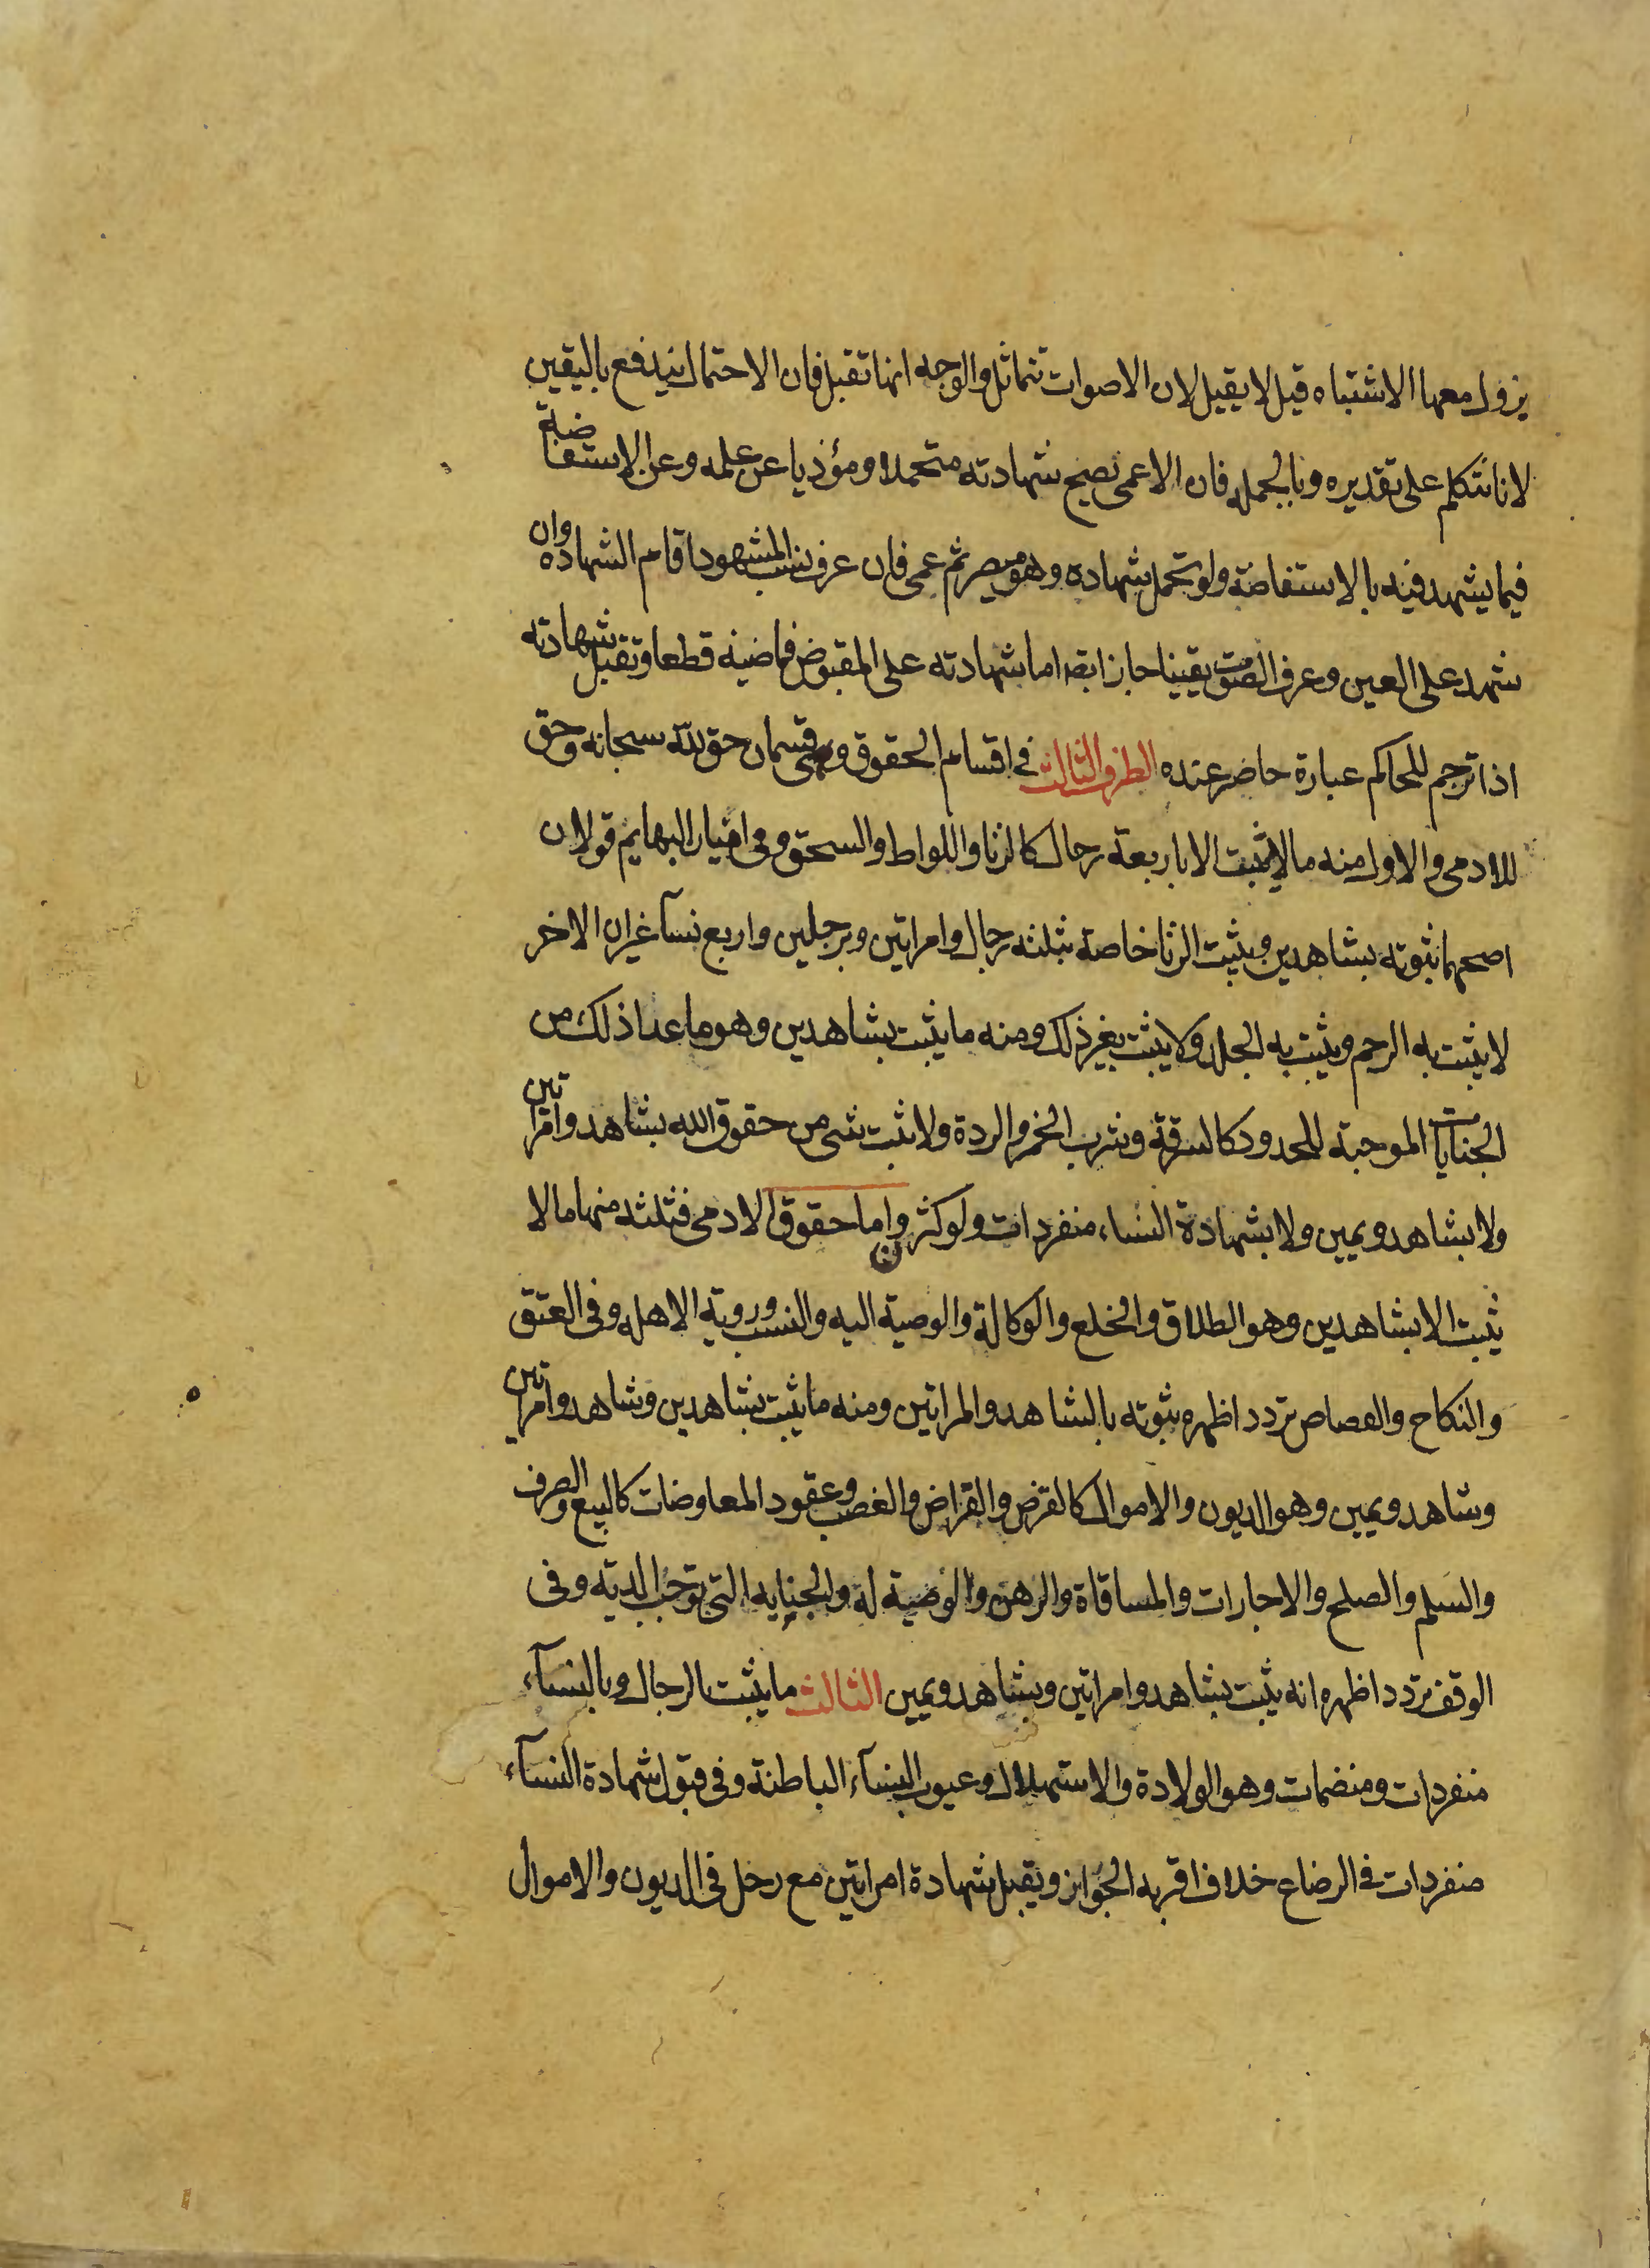 يزول معها الاشتباه قيل لا يقبل لان الاصوات تتماثل والوجه انها تقبل فان الاحتمال يندفع باليقين
لانا نتكلم على تقديره وبالجمله فان الاعمى تصح شهادته متحملا ومؤديا عن علمه وعن الاستفاضة
فيما يشهد فيه بالاستفاضة ولو تحمل شهاده وهو مبصر ثم عمى فان عرف نسب المشهود اقام الشهاده وان
شهد على العين وعرف الصوت يقينا جاز ايضا اما شهادته على المقبوض فماضيه قطعا وتقبل شهادته
اذا ترجم للحاكم عبارة حاضر عنده الطرف الثالث في اقسام الحقوق وهى قسمان حق لله سبحانه وحق
للادمى والاول منه ما لا يثبت الا باربعة رجال كالزنا واللواط والسحق وفى اتيان البهايم قولان
اصحهما ثبوته بشاهدين ويثبت الزنا خاصة بثلثه رجال وامراتين وبرجلين واربع نسآ غير ان الاخر
لا يثبت به الرجم ويثبت به الجلد ولا يثبت بغير ذلك ومنه ما يثبت بشاهدين وهو ما عدا ذلك من
الجنايات الموجبة للحدود كالسرقة وشرب الخمر والردة ولا يثبت شى من حقوق الله بشاهد وامراتين
ولا بشاهد ويمين ولا بشهادة النساء منفردات ولو كثرن واما حقوق الادمى فثلثه منها ما لا
يثبت الا بشاهدين وهو الطلاق والخلع والوكالة والوصية اليه والنسب وروية الاهله وفى العتق
والنكاح والقصاص تردد اظهره ثبوته بالشاهد والمراتين ومنه ما يثبت بشاهدين وشاهد وامراتين
وشاهد ويمين وهو الديون والاموال كالقرض والقراض والغصب وعقود المعاوضات كالبيع والصرف
والسلم والصلح والاجارات والمساقاة والرهن والوصية له والجنايه التى توجب الدية وفى
الوقف تردد اظهره انه يثبت بشاهد وامراتين وبشاهد ويمين الثالث ما يثبت بالرجال وبالنسآء
منفردات ومنضمات وهو الولادة والاستهلال وعيوب النسآء الباطنة وفى قبول شهادة النسآء
منفردات فى الرضاع خلاف اقربه الجواز ويقبل شهادة امراتين مع رجل فى الديون والاموال